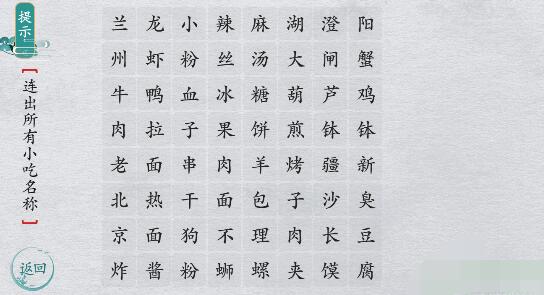 提示
【连出所有小吃名称】
返回
兰龙小辣麻湖澄阳
州虾粉丝汤大闸蟹
牛鸭血冰糖葫芦鸡
肉拉子果饼煎钵钵
老面串肉羊烤疆新
北热干面包子沙臭
京面狗不理肉长豆
炸酱粉蛳螺夹馍腐